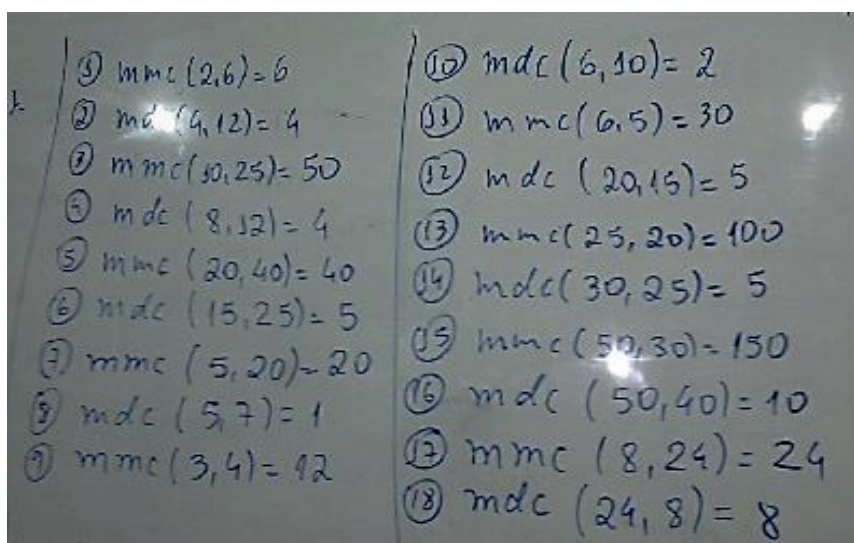 ① mmc (2,6) = 6
② mdc (4,12) = 4
③ mmc (10,25) = 50
④ mdc (8,12) = 4
⑤ mmc (20,40) = 40
⑥ mdc (15,25) = 5
⑦ mmc (5,20) = 20
⑧ mdc (5,7) = 1
⑨ mmc (3,4) = 12
⑩ mdc (6,10) = 2
⑪ mmc (6,5) = 30
⑫ mdc (20,15) = 5
⑬ mmc (25,20) = 100
⑭ mdc (30,25) = 5
⑮ mmc (50,30) = 150
⑯ mdc (50,40) = 10
⑰ mmc (8,24) = 24
⑱ mdc (24,8) = 8